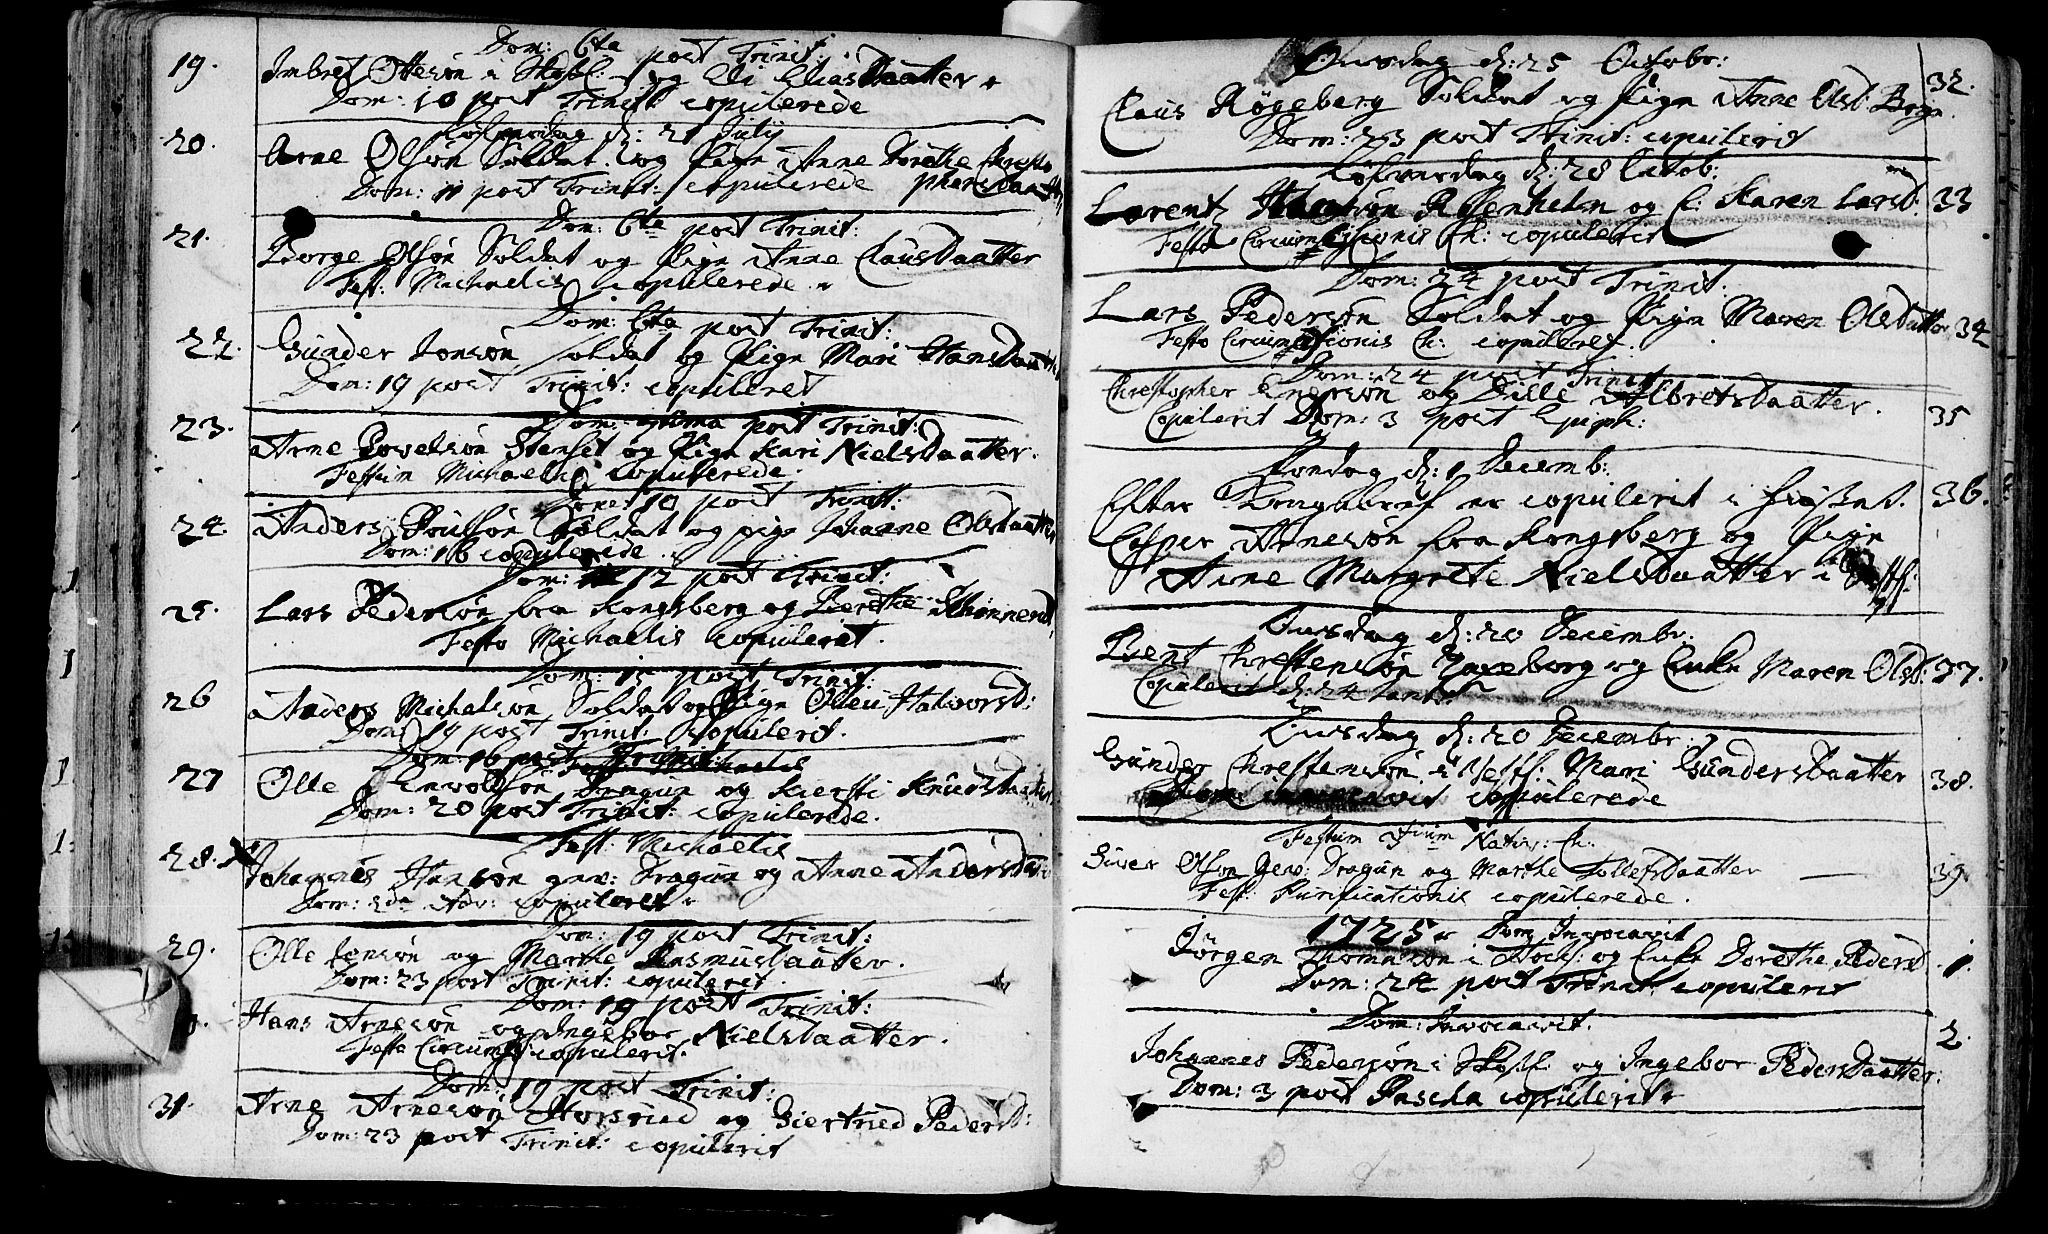 Dom: 6ta post Trinit:
19. Imbret Ottesøn i Skofl: og Eli EliasDaatter
Dom: 10 post Trinit copulerede
Løfuerdag d: 21 July
20. Arne Olsøn Soldat og Pige Anne Dorethe Christo
Dom: 11 post Trinit: copulerede phersdaatter
Dom: 6ta post Trinit:
21. Borge Olsøn Soldat og Pige Anne ClausDaatter
Fest: Michaelis copulerede
Dom: 6ta post Trinit:
22. Gunder Jonsøn Soldat og Pige Mari HansDaatter
Dom: 19 post Trinit: copuleret
Dom: post Trinit:
23. Arne Povelsøn Stenset og Pige Kari NielsDaatter.
Festum Michaelis copulerede.
Dom: 10 post Trinit:
24. Anders Poulsøn Soldat og pige Johanne Olsdaatter
Dom: 16 copulerede
Dom: 12 post Trinit:
25. Lars Pedersøn fra Kongsberg og Berethe
Festo Michaelis copuleret.
Dom: post Trinit:
26 Anders Michelsøn Soldat og Pige Oleu Halvorsd:
Dom 19 post Trinit: copulerit.
Dom: 16 post Trinit:
27 Olle Envoldsøn Dragun og Kiersti KnudsDaatter
Dom: 20 post Trinit: copulerede.
Fest: Michaelis
28. Johannes Hansøn gev: Dragun og Anne AndersDaat
Dom: 2da Adv: copuleret
Dom: 19 post Trinit:
29. Olle Jensøn og Marthe Rasmusdaatter.
Dom: 23 post Trinit: copuleret
Dom: 19 post Trinit:
Hans Arnesøn og Ingebor NielsDaatter.
Festo Circums: copulerit.
Dom: 19 post Trinit:
31. Arne Arnesøn Horsrud og Giertrud Pedersd:
Dom: 23 post Trinit: copulerit
Onsdag d: 25 Octobr:
Claus Rögeberg Soldat og Pige Anne Olsd: Berge. 32.
Dom: 23 post Trinit: copulerit
Løfverdag d: 28 Octob:
Lorentz Rosenholm og E: Karen Larsd: 33
Festo Circumcisionis Ch: copulerit
Dom: 24 post Trinit.
Lars Pedersøn Soldat og Pige Maren Olsdatter 34
Festo Circumcisionis Ch: copuleret.
Dom: 24 post Trinit:
Chrestopher Enersøn og Dille AlbretsDaatter. 35
Copulerit Dom: 3 post Epiph:
d: 1 Decemb:
Efter Kongebref er copulerit i Huset. 36.
Casper Arnesøn fra Kongsberg og Pige
Anne Margrete NielsDaatter i
Onsdag d: 20 Decembr:
Bent Chrestensøn og Enke Maren Olsd: 37.
Copulerit d: 24
Onsdag d: 20 Decembr.
Gunder Chrestensøn i Vestf: Mari GundersDaatter 38.
copulerede
Festum 3tium Nativ: Ch:
Siver Olsøn Gev: Dragun og Marthe TollefsDaatter 39.
Fest: Purificationis copulerede.
1725. Dom Invocavit
Jörgen Thomesøn i og Enke Dorethe Pedersd. 1.
Dom: 24 post Trinit: copulerit
Dom: Invocavit.
Johannes Pedersøn i Skofl: og Ingebor PedersDaatter. 2.
Dom: 3 post Pascha copulerit